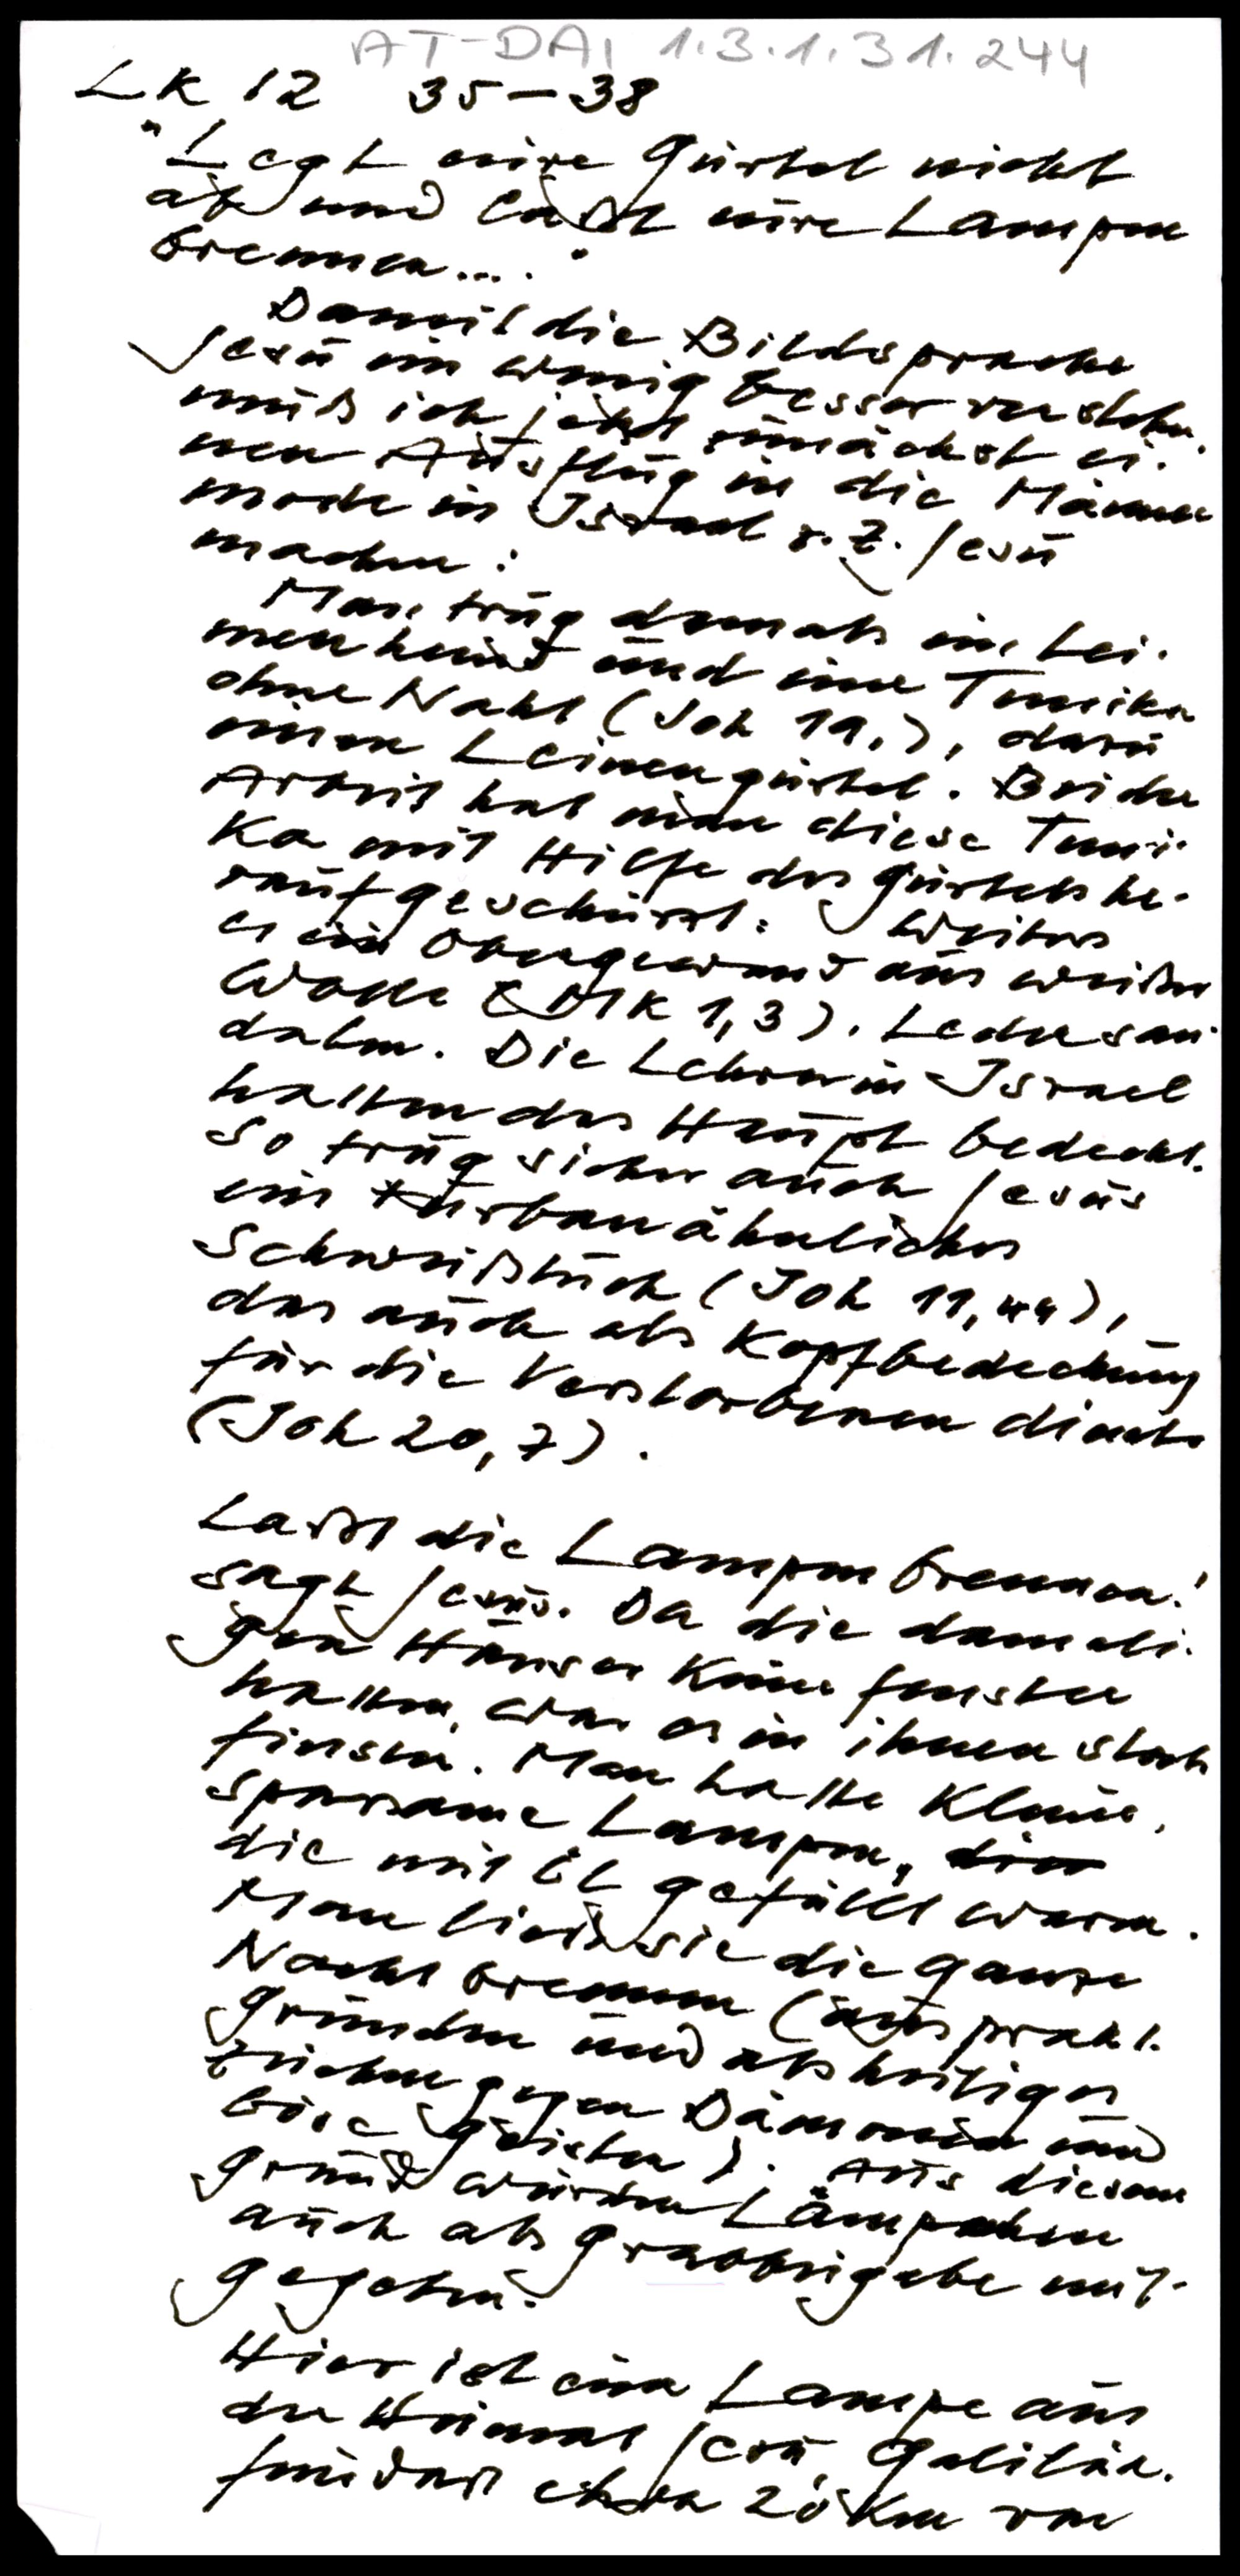 AT-DAI 1.3.1.31.244
Lk 12 35-38
"Legt eure Gürtel nicht
ab und laßt eure Lampen
brennen...."
Damit die Bildsprache
Jesu ein wenig besser verstehen,
muß ich jetzt zunächst ei-
nen Ausflug in die Männer
mode in Israel z. Z. Jesu
machen:
Man trug damals ein Lei-
nenhemd und eine Tunika
ohne Naht (Joh 19,), dazu
einen Leinengürtel. Bei der
Arbeit hat man diese Tuni-
ka mit Hilfe des Gürtels he-
raufgeschürzt: Weiters
ein Obergewand aus weißer
Wolle (Mk 1,3). Ledersan-
dalen. Die Lehrer in Israel
hatten das Haupt bedeckt.
So trug sicher auch Jesus
ein turbanähnliches
Schweißtuch (Joh 11,44),
das auch als Kopfbedeckung
für die Verstorbenen diente
(Joh 20,7).
Laßt die Lampen brennen!
sagt Jesus. Da die damali-
gen Häuser keine Fenster
hatten, war es in ihnen stock
finster. Man hatte kleine,
sparsame Lampen,
die mit Öl gefüllt waren.
Man ließ sie die ganze
Nacht brennen (aus prakt.
Gründen und als heiliges
Zeichen gegen Dämonen und
böse Geister). Aus diesem
Grund wurden Lämpchen
auch als Grabbeigabe mit-
gegeben.
Hier ist eine Lampe aus
der Heimat Jesu, Galiläa.
Fundort etwa 20 km von